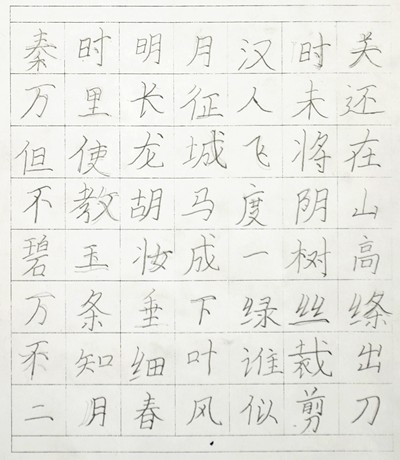 秦时明月汉时关
万里长征人未还
但使龙城飞将在
不教胡马度阴山
碧玉妆成一树高
万条垂下绿丝绦
不知细叶谁裁出
二月春风似剪刀